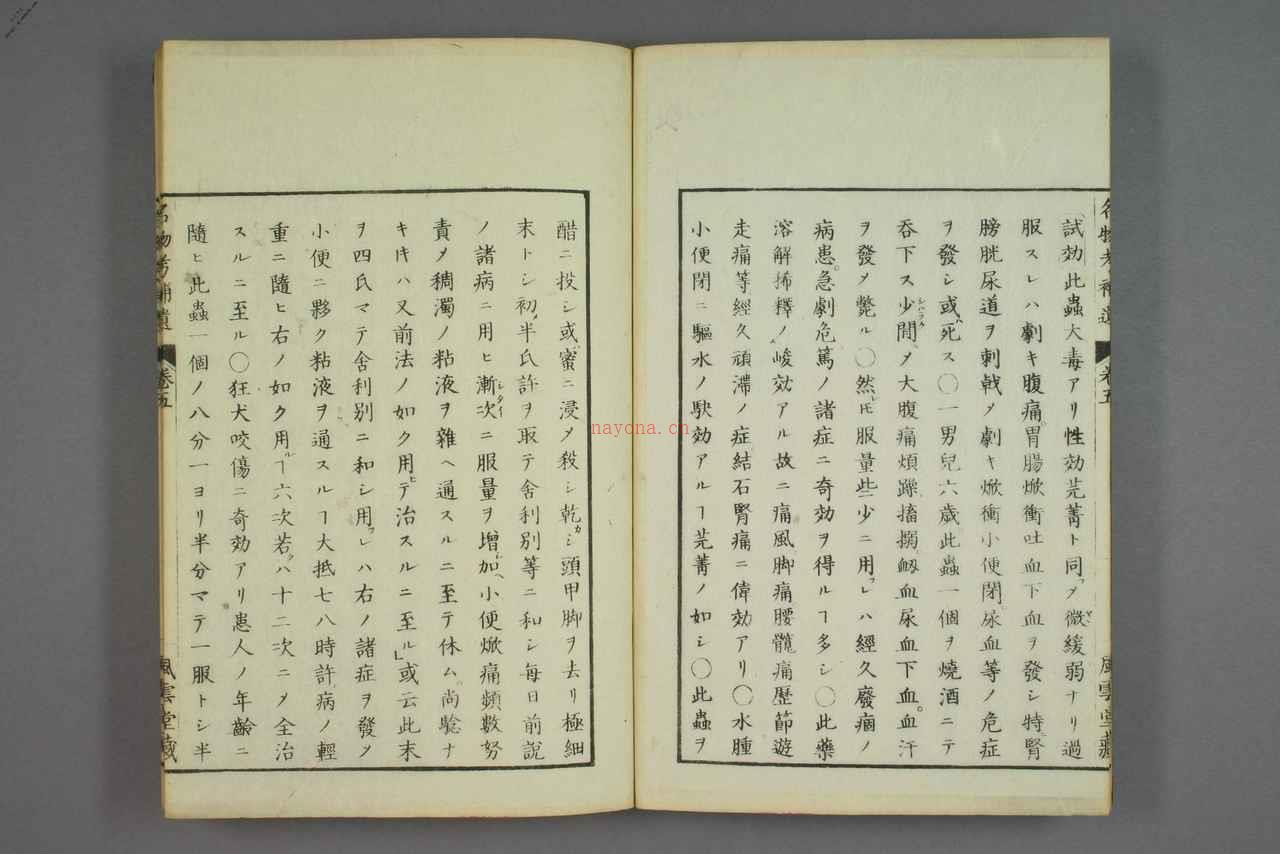 名物考補遺 卷五 風雲堂藏
「試効此蟲大毒アリ性効芫菁ト同フメ微緩弱ナリ過
服スレハ劇キ腹痛胃腸焮衝吐血下血ヲ發シ特腎
膀胱尿道ヲ刺戟メ劇キ焮衝小便閉尿血等ノ危症
ヲ發シ或死ス〇一男兒六歳此蟲一個ヲ燒酒ニテ
吞下ス少間メ大腹痛煩躁搐搦衂血尿血下血血汗
ヲ發メ斃ル〇然ヒ𪜈服量些少ニ用フレハ經久廢痼ノ
病患急劇危篤ノ諸症ニ奇効ヲ得ルヿ多シ〇此藥
溶解揥釋ノ峻効アル故ニ痛風脚痛腰髖痛歷節遊
走痛等經久頑滯ノ症結石腎痛ニ偉効アリ〇水腫
小便閉ニ驅水ノ駃効アルヿ芫菁ノ如シ〇此蟲ヲ
醋ニ投シ或蜜ニ浸メ殺シ乾カシ頭甲脚ヲ去リ極細
末トシ初メ半氏許ヲ取テ舍利別等ニ和シ每日前說
ノ諸病ニ用ヒ漸次ニ服量ヲ增加ヘ小便焮痛頻數努
責メ稠濁ノ粘液ヲ雜ヘ通スルニ至テ休ム尚驗ナ
キ𪜈ハ又前法ノ如ク用ヒテ治スルニ至ル」或云此末
ヲ四氏マテ舍利別ニ和シ用フレハ右ノ諸症ヲ發メ
小便ニ夥ク粘液ヲ通スルヿ大抵七八時許病ノ輕
重ニ隨ヒ右ノ如ク用ルヿ六次若クハ十二次ニメ全治
スルニ至ル〇狂犬咬傷ニ奇効アリ患人ノ年齡ニ
隨ヒ此蟲一個ノ八分一ヨリ半分マテ一服トシ半
名物考補遺 卷五 風雲堂藏
nayona.cn